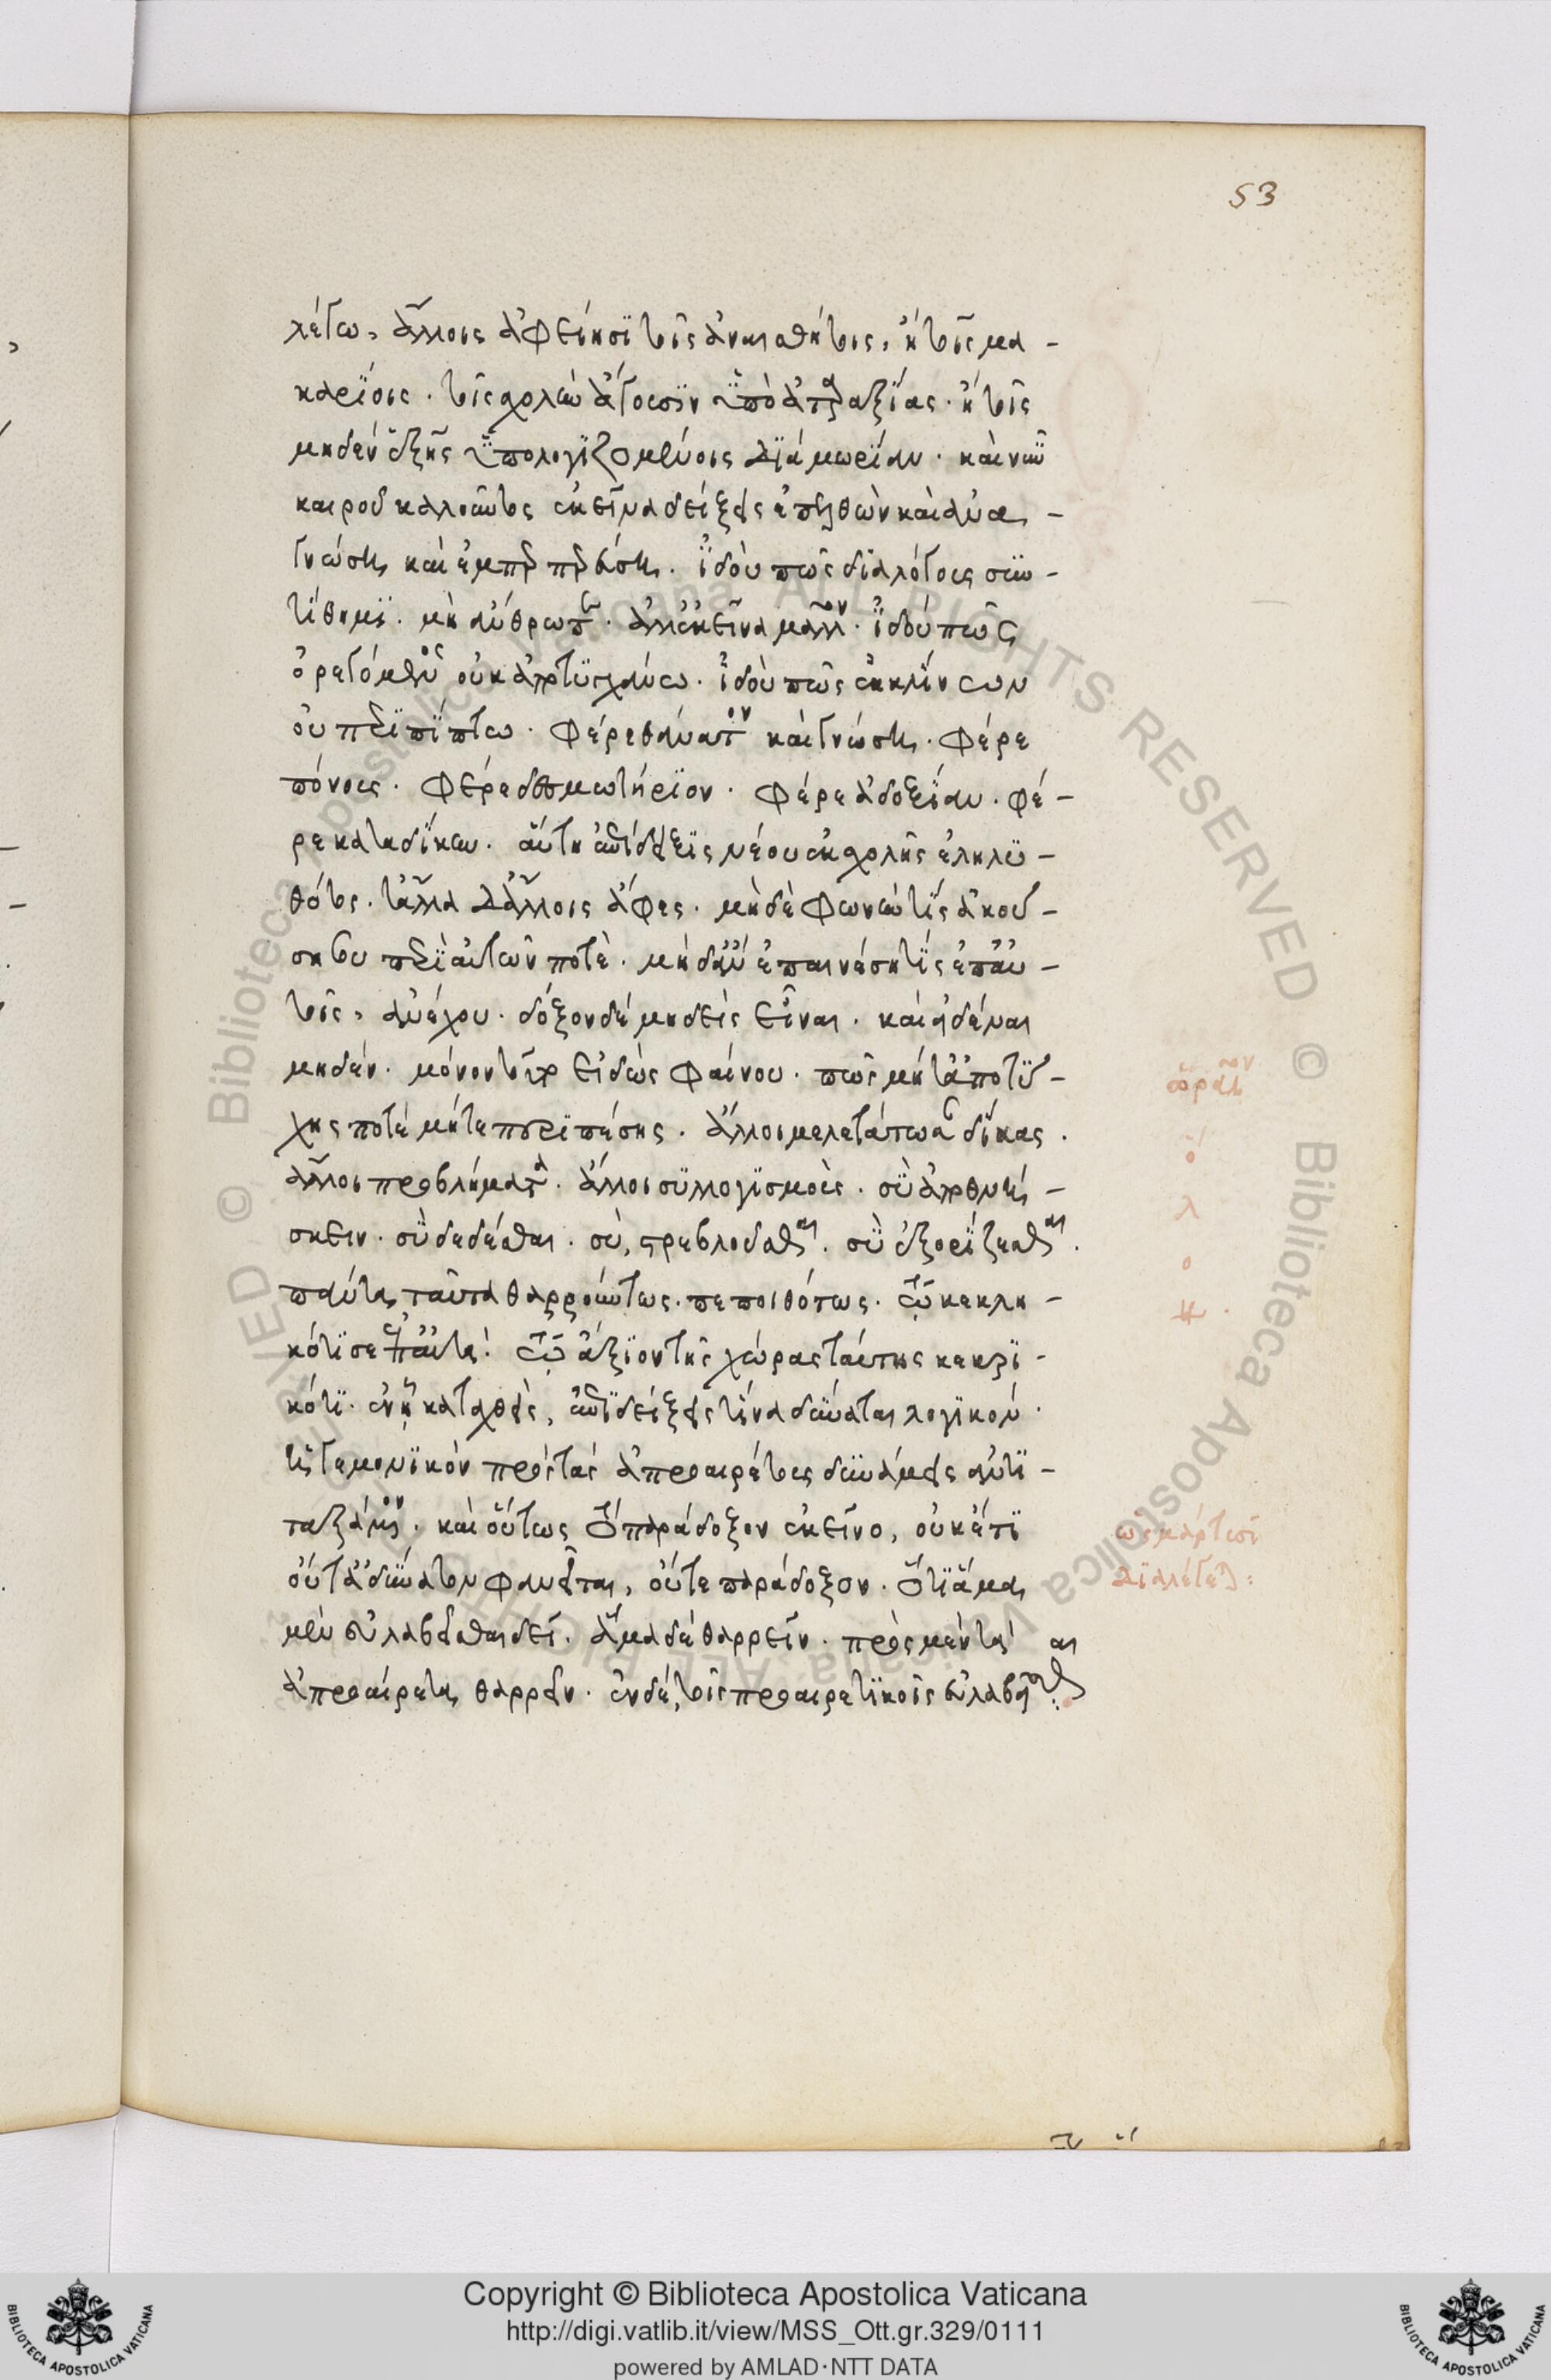 λέγω, ἄλλοις ἀφεῖκσϊ τοῖς ἀναισθήτοις, ἢ τοῖς μα-
καρϊοις. τοῖς σχολὴν ἄγουσϊν ὑπὸ ἀπραξΐας. ἢ τοῖς
μηδὲν ἑξῆς ὑπολογϊζομένοις διὰ μωρΐαν. καὶ νῦν
καιροῦ καλοῦντος ἐκεῖνα δείξεις ἀπελθὼν καὶ ἀνα-
γνώσῃ καὶ ἐμπερπερεύσῃ. ἰδοὺ πῶς διαλόγους συν-
τίθημϊ. μὴ ἄνθρωπε. ἀλλ' ἐκεῖνα μᾶλλον. ἰδοὺ πῶς
ὀρεγόμενος οὐκ ἀποτυγχάνω. ἰδοὺ πῶς ἐκκλίνων
οὐ περιπίπτω. φέρε θάνατον καὶ γνώσῃ. φέρε
πόνους. φέρε δεσμωτήρϊον. φέρε ἀδοξΐαν. φέ-
ρε καταδίκην. αὕτη ἐπίδειξϊς νέου ἐκ σχολῆς ἐληλυ-
θότος. τἆλλα δ' ἄλλοις ἄφες. μηδὲ φωνήν τίς ἀκού-
σῃ σου περὶ αὐτῶν ποτὲ. μηδ' ἂν ἐπαινέσῃ τίς ἐπ' αὐ-
τοῖς, ἀνέχου. δόξον δὲ μηδεὶς εἶναι. καὶ εἰδέναι
μηδέν. μόνον τοῦτο εἰδὼς φαίνου. πῶς μήτ' ἀποτύ-
χῃς ποτὲ μήτε περιπέσῃς. ἄλλοι μελετάτωσαν δίκας.
ἄλλοι προβλήματα. ἄλλοι συλλογϊσμούς. σὺ ἀποθνή-
σκειν. σὺ δεδέσθαι. σὺ, στρεβλοῦσθαι. σὺ ἐξορΐζεσθαι.
πάντα ταῦτα θαρρούντως. πεποιθότως. τῷ κεκλη-
κότι σε ἐπ' αὐτά. τῷ ἄξιον τῆς χώρας ταύτης κεκρϊ-
κότϊ. ἐν ᾗ καταχθεὶς, ἐπιδείξεις τίνα δύναται λογϊκὸν.
ἡγεμονϊκὸν πρὸς τὰς ἀπροαιρέτους δυνάμεις ἀντϊ-
ταξάμενον. καὶ οὕτως τὸ παράδοξον ἐκεῖνο, οὐκέτϊ
οὔτ' ἀδύνατον φανεῖται, οὔτε παράδοξον. ὅτι ἅμα
μὲν εὐλαβεῖσθαι δεῖ. ἅμα δὲ θαρρεῖν. πρὸς μὲν τὰ
ἀπροαίρετα θαρρεῖν. ἐν δὲ, τοῖς προαιρετϊκοῖς εὐλαβεῖσθαι
ὡραῖον
ὅ
λ
ο
ϗ.
ὡς μάρτυσι
διαλέγεται:
53
Copyright © Biblioteca Apostolica Vaticana
http://digi.vatlib.it/view/MSS_Ott.gr.329/0111
powered by AMLAD·NTT DATA